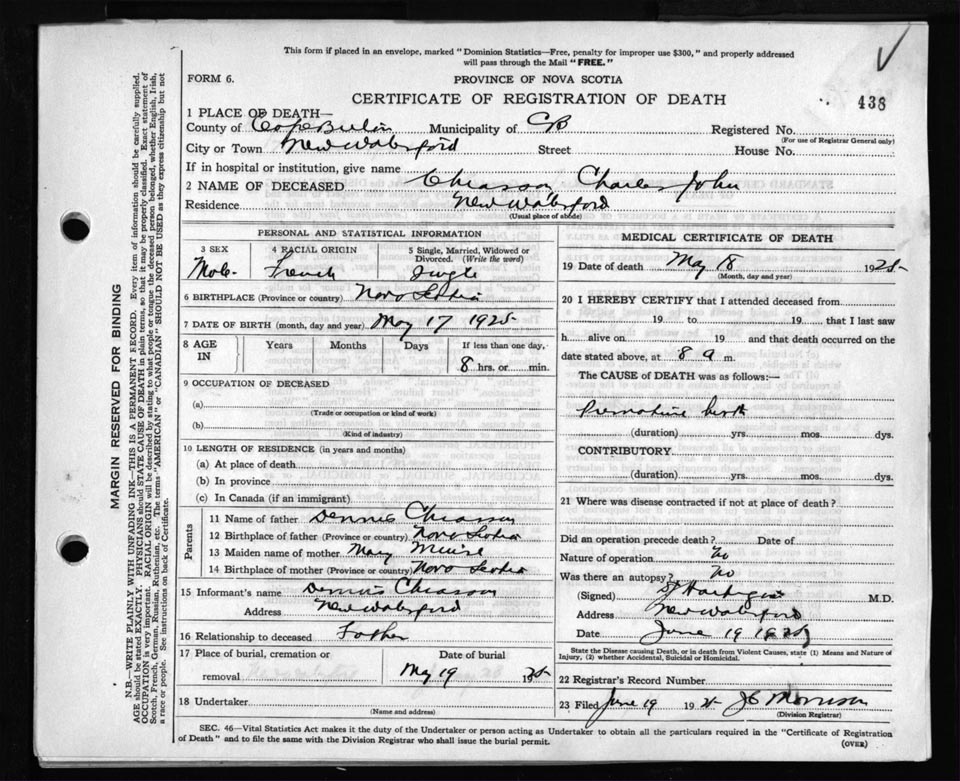 This form if placed in an envelope, marked "Dominion Statistics—Free, penalty for improper use $300," and properly addressed
will pass through the Mail "FREE."
FORM 6.
PROVINCE OF NOVA SCOTIA
CERTIFICATE OF REGISTRATION OF DEATH
438
1 PLACE OF DEATH—
County of Cape Breton Municipality of CB Registered No.
(For use of Registrar General only)
City or Town New Waterford Street House No.
If in hospital or institution, give name
2 NAME OF DECEASED Chiasson Charles John
Residence New Waterford
(Usual place of abode)
PERSONAL AND STATISTICAL INFORMATION
3 SEX 4 RACIAL ORIGIN 5 Single, Married, Widowed or
Divorced. (Write the word)
Male French Single
6 BIRTHPLACE (Province or country) Nova Scotia
7 DATE OF BIRTH (month, day and year) May 17 1925
8 AGE IN Years Months Days If less than one day,
8 hrs. or min.
9 OCCUPATION OF DECEASED
(a)
(Trade or occupation or kind of work)
(b)
(Kind of industry)
10 LENGTH OF RESIDENCE (in years and months)
(a) At place of death
(b) In province
(c) In Canada (if an immigrant)
Parents
11 Name of father Dennis Chiasson
12 Birthplace of father (Province or country) Nova Scotia
13 Maiden name of mother Mary Muise
14 Birthplace of mother (Province or country) Nova Scotia
15 Informant's name Dennis Chiasson
Address New Waterford
16 Relationship to deceased Father
17 Place of burial, cremation or Date of burial
removal May 19 1925
18 Undertaker
(Name and address)
MEDICAL CERTIFICATE OF DEATH
19 Date of death May 18 1925
(Month, day and year)
20 I HEREBY CERTIFY that I attended deceased from
19 to 19 that I last saw
h alive on 19 and that death occurred on the
date stated above, at 8 a m.
The CAUSE of DEATH was as follows:—
Premature birth
(duration) yrs. mos. dys.
CONTRIBUTORY
(duration) yrs. mos. dys.
21 Where was disease contracted if not at place of death?
Did an operation precede death? Date of
Nature of operation No
Was there an autopsy? No
(Signed) M.D.
Address New Waterford
Date June 19 1925
State the Disease causing Death, or in death from Violent Causes, state (1) Means and Nature of
Injury, (2) whether Accidental, Suicidal or Homicidal.
22 Registrar's Record Number
23 Filed June 19 192 J C Morrison
(Division Registrar)
SEC. 46—Vital Statistics Act makes it the duty of the Undertaker or person acting as Undertaker to obtain all the particulars required in the "Certificate of Registration
of Death" and to file the same with the Division Registrar who shall issue the burial permit.
(OVER)
MARGIN RESERVED FOR BINDING
N.B.—WRITE PLAINLY WITH UNFADING INK—THIS IS A PERMANENT RECORD. Every item of information should be carefully supplied.
AGE should be stated EXACTLY. PHYSICIANS should STATE CAUSE OF DEATH in plain terms, so that it may be properly classified. Exact statement of
OCCUPATION is very important. RACIAL ORIGIN will be described by stating to what people or tongue the deceased person belonged, whether English, Irish,
Scotch, French, German, Russian, Ruthenian, etc. The terms "AMERICAN" or "CANADIAN" SHOULD NOT BE USED as they express citizenship but not
a race or people. See instructions on back of Certificate.